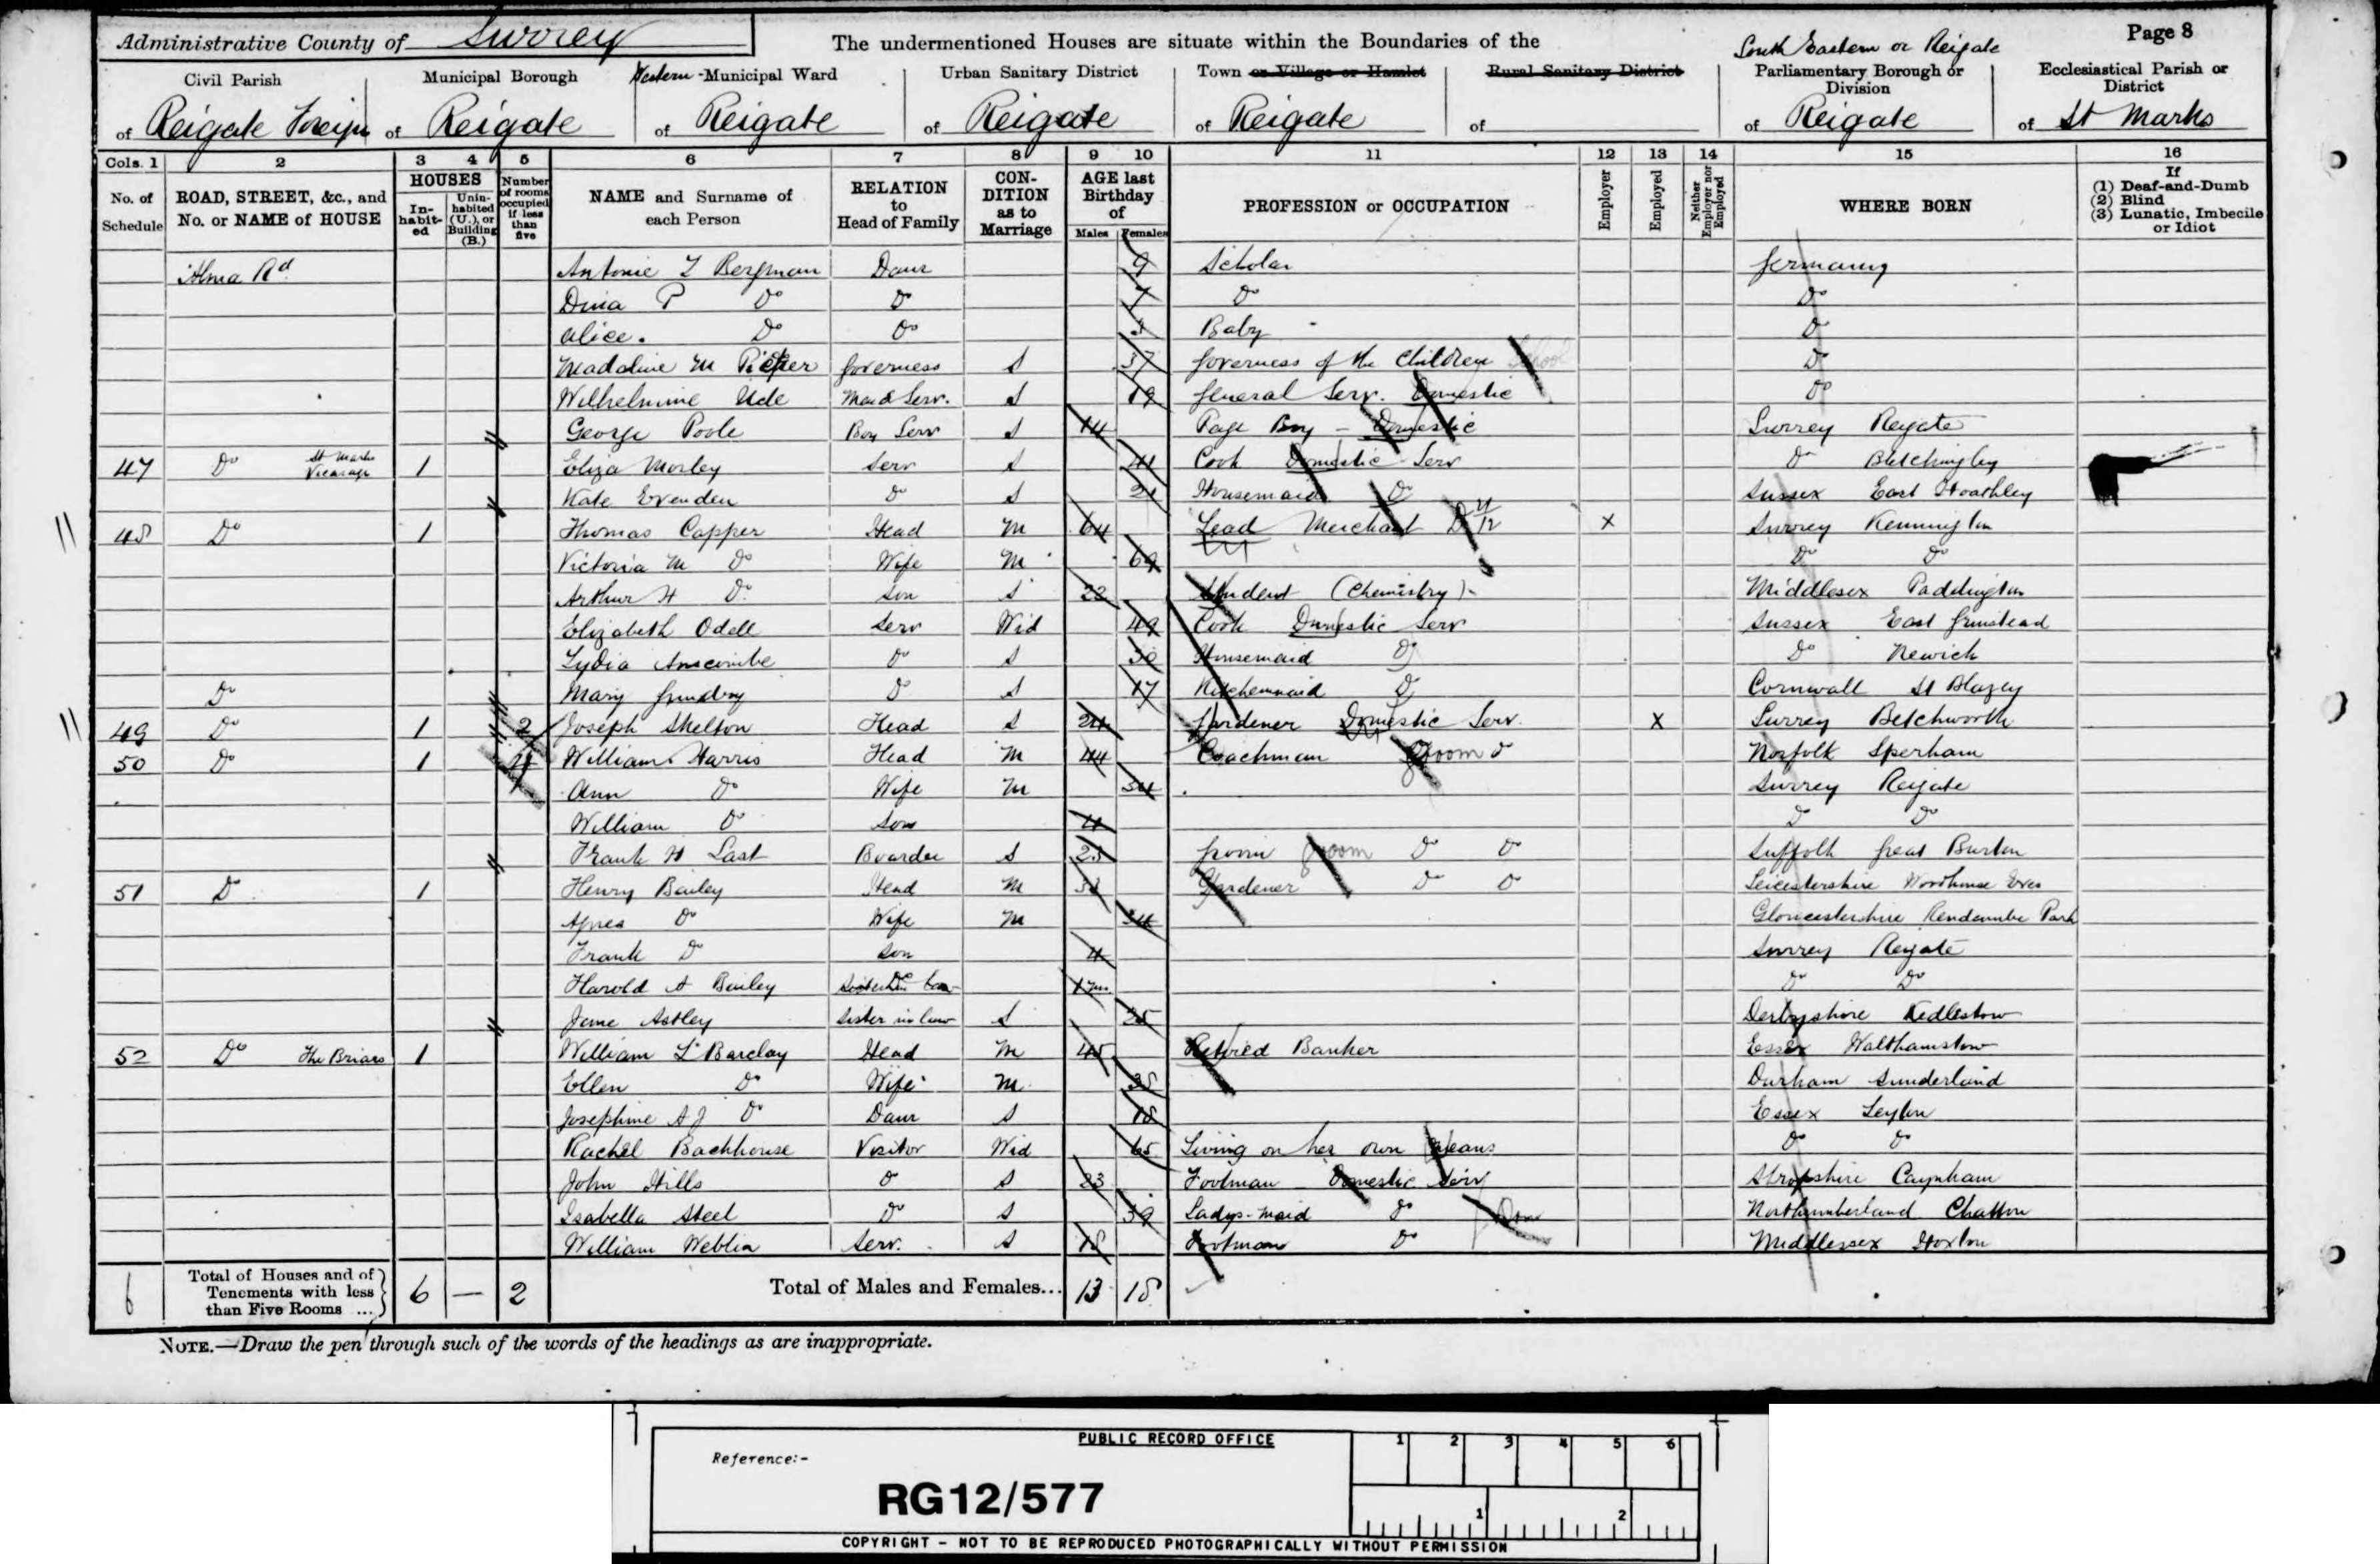 Administrative County of Surrey
The undermentioned Houses are situate within the Boundaries of the
Page 8
Civil Parish of Reigate Foreign
Municipal Borough of Reigate
Western Municipal Ward of Reigate
Urban Sanitary District of Reigate
Town or Village or Hamlet of Reigate
Rural Sanitary District of
South Eastern or Reigate Parliamentary Borough or Division of Reigate
Ecclesiastical Parish or District of St Marks
Cols. 1 2 3 4 5 6 7 8 9 10 11 12 13 14 15 16
No. of Schedule
ROAD, STREET, &c., and No. or NAME of HOUSE
HOUSES
Inhabited
Uninhabited (U.), or Building (B.)
Number of rooms occupied if less than five
NAME and Surname of each Person
RELATION to Head of Family
CONDITION as to Marriage
AGE last Birthday of
Males Females
PROFESSION or OCCUPATION
Employer
Employed
Neither Employer nor Employed
WHERE BORN
If
(1) Deaf-and-Dumb
(2) Blind
(3) Lunatic, Imbecile or Idiot
Alma Rd Antonie L Bergman Daur 9 Scholar Germany
Dina P Do Do 7 Do Do
Alice. Do Do 3 Baby Do
Madaline M Governess S 37 Governess of the Children School Do
Wilhelmine Ude Maid Serv. S 19 General Serv. Domestic Do
George Poole Boy Serv S 14 Page Boy - Domestic Surrey Reigate
47 Do St Marks Vicarage 1 Eliza Morley Serv S 41 Cook Domestic Serv Do Bletchingley
Kate Evenden Do S 21 Housemaid Do Sussex East Hoathley
48 Do 1 Thomas Capper Head M 64 Lead Merchant X Surrey Kennington
Victoria M Do Wife M 69 Do Do
Arthur H Do. Son S 22 Student (Chemistry) Middlesex Paddington
Elizabeth Odell Serv Wid 49 Cook Domestic Serv Sussex East Grinstead
Lydia Anscombe Do S 30 Housemaid Do Do Newick
Do Mary Grundry Do S 17 Kitchenmaid Do Cornwall St Blazey
49 Do 1 2 Joseph Skelton Head S 24 Gardener Domestic Serv. X Surrey Betchworth
50 Do 1 4 William Harris Head M 44 Coachman Groom Do Norfolk Sperham
Ann Do Wife M 34 Surrey Reigate
William Do Son 4 Do Do
Frank H Last Boarder S 23 Groom Groom Do Do Suffolk Great Barton
51 Do 1 Henry Bailey Head M 33 Gardener Do Do Leicestershire Woodhouse Eves
Agnes Do Wife M 34 Gloucestershire Rendcombe Park
Frank Do Son 4 Surrey Reigate
Harold A Bailey Do Do Do
Jane Astley Sister in law S 25 Derbyshire Kedleston
52 Do The Briars 1 William L Barclay Head M 45 Retired Banker Essex Walthamstow
Ellen Do Wife M 38 Durham Sunderland
Josephine A J Do Daur S 18 Essex Leyton
Rachel Backhouse Visitor Wid 65 Living on her own Means Do Do
John Hills Do S 23 Footman Domestic Serv Shropshire Caynham
Isabella Steel Do S 39 Ladys-Maid Do Dom Northumberland Chatton
William Weblin Serv. S 18 Footman Do Middlessex Hoxton
6 Total of Houses and of Tenements with less than Five Rooms ... 6 — 2 Total of Males and Females... 13 18
NOTE.—Draw the pen through such of the words of the headings as are inappropriate.
PUBLIC RECORD OFFICE
1 2 3 4 5 6
Reference:-
RG12/577
1 2
COPYRIGHT - NOT TO BE REPRODUCED PHOTOGRAPHICALLY WITHOUT PERMISSION